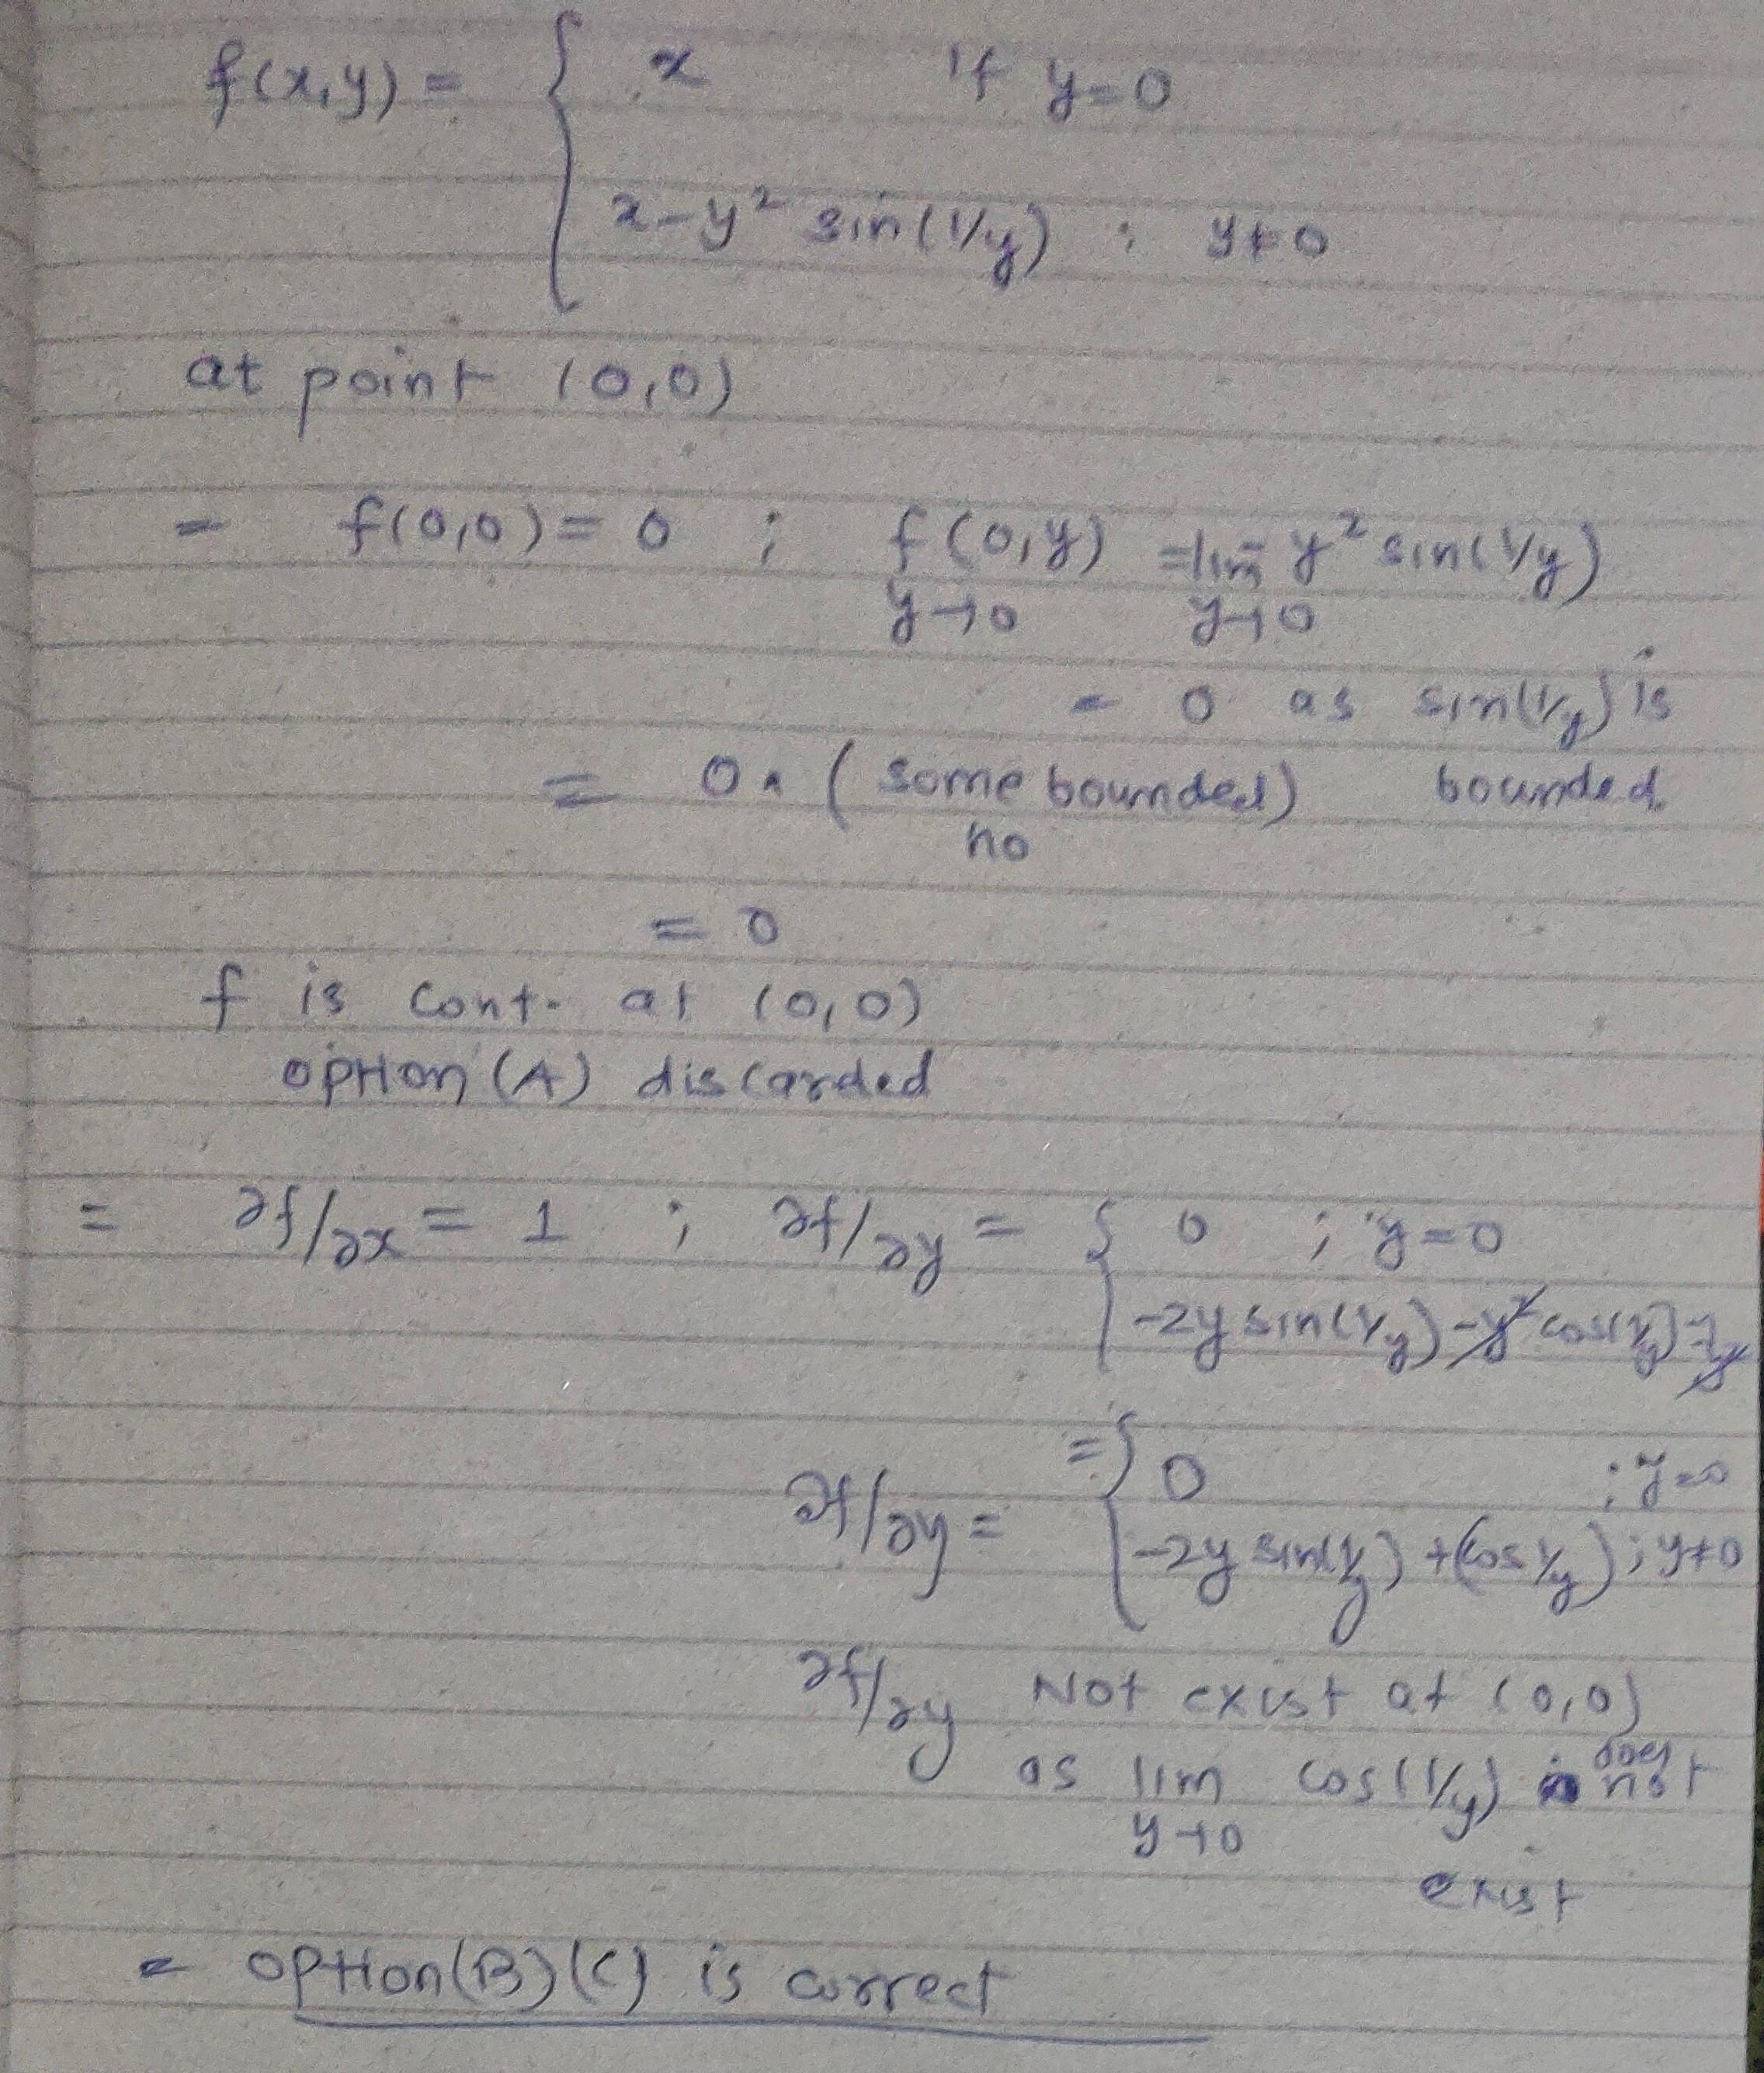 f(x,y) = { x if y=0
x-y² sin(1/y) ; y≠0
at point (0,0)
- f(0,0) = 0 ; f(0,y) = lim - y² sin(1/y)
y→0 y→0
= 0 as sin(1/y) is
= 0 × (some bounded) bounded.
no
= 0
f is cont. at (0,0)
option (A) discarded
= ∂f/∂x = 1 ; ∂f/∂y = { 0 ; y=0
-2y sin(1/y) - y² cos(1/y)
∂f/∂y = = { 0 ; y=0
-2y sin(1/y) + (cos 1/y) ; y≠0
∂f/∂y Not exist at (0,0)
as lim cos(1/y) does not
y→0
exist
= option(B)(C) is correct